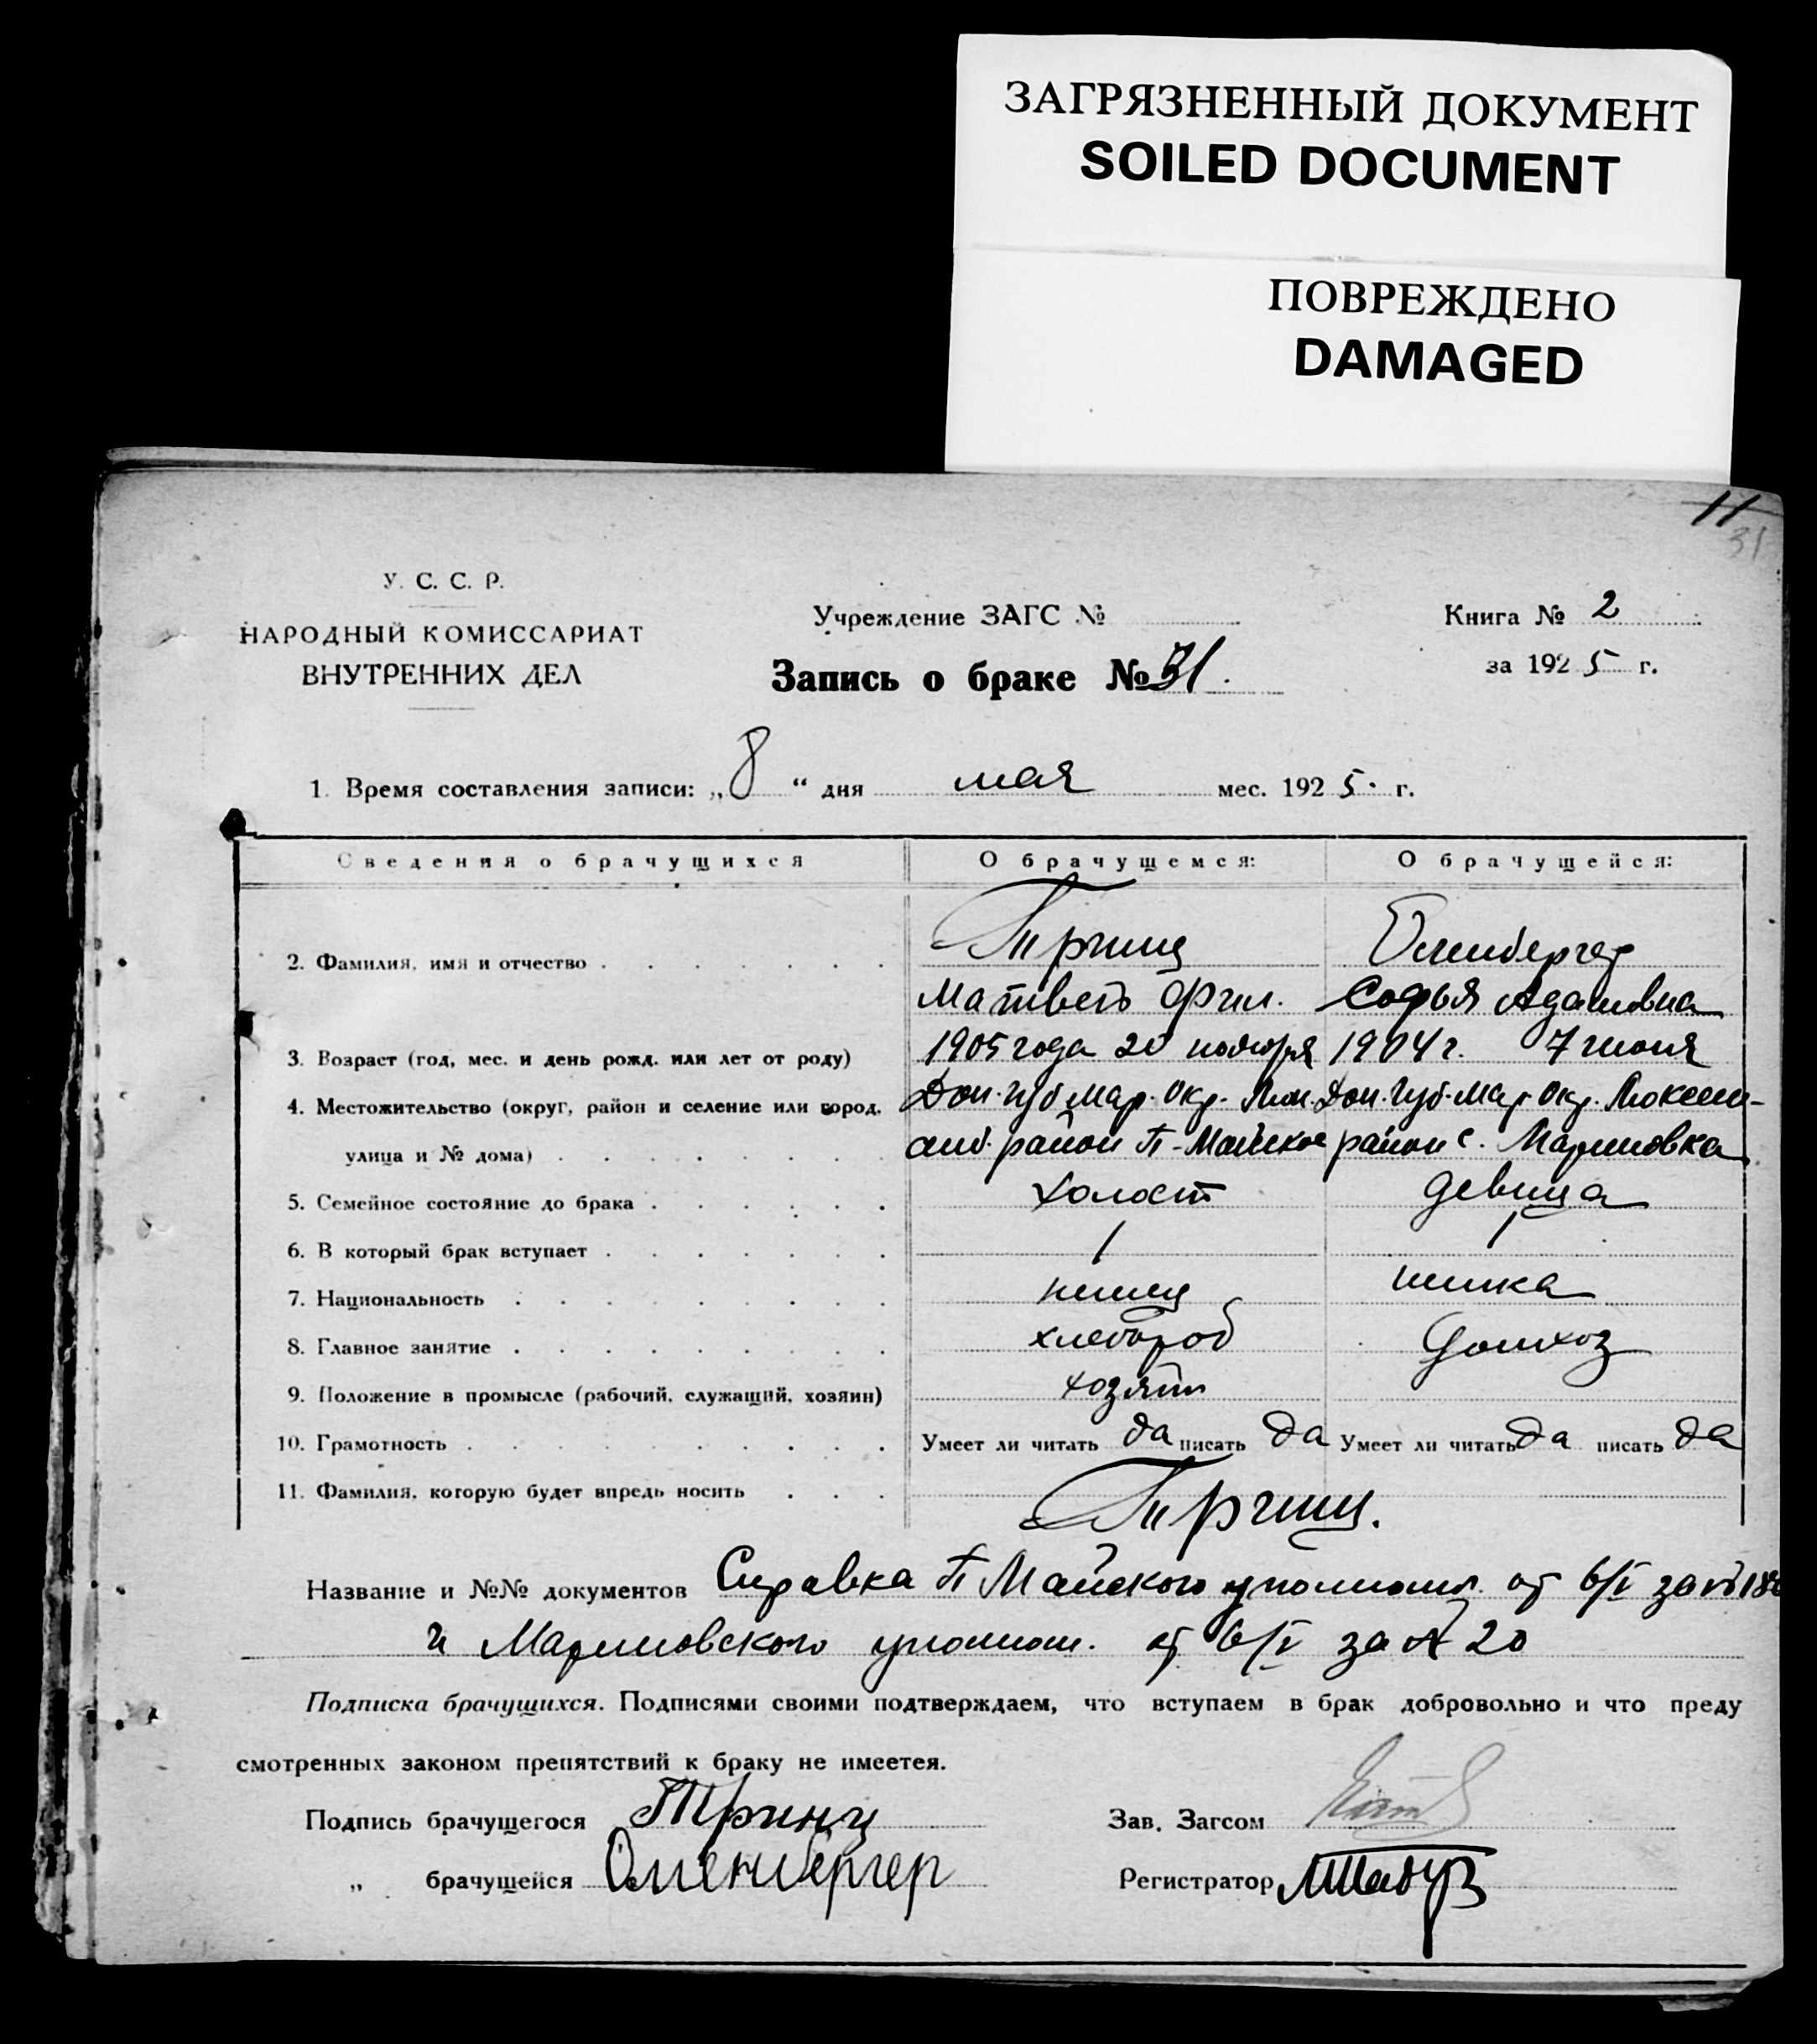 ЗАГРЯЗНЕННЫЙ ДОКУМЕНТ
SOILED DOCUMENT
ПОВРЕЖДЕНО
DAMAGED
11
31
У. С. С. Р.
НАРОДНЫЙ КОМИССАРИАТ
ВНУТРЕННИХ ДЕЛ
Учреждение ЗАГС №
Запись о браке № 31.
Книга № 2
за 1925 г.
1. Время составления записи: „8“ дня мая мес. 1925. г.
Сведения о брачущихся О брачущемся: О брачущейся:
2. Фамилия, имя и отчество Тринц Оленбергер
Матвей Фил. Софья Адамовна
3. Возраст (год, мес. и день рожд. или лет от роду) 1905 года 20 ноября 1904 г. 7 июня
4. Местожительство (округ, район и селение или город, Дон. губ. Мар. Окр. Люк Дон. Губ. Мар Окр. Люксем-
улица и № дома) район П-Майское район с. Мариновка
5. Семейное состояние до брака холост девица
6. В который брак вступает 1 1
7. Национальность немец немка
8. Главное занятие хлебороб домхоз
9. Положение в промысле (рабочий, служащий, хозяин) хозяин
10. Грамотность Умеет ли читать да писать да Умеет ли читать да писать да
11. Фамилия, которую будет впредь носить Тринц.
Название и №№ документов Справка П Майского уполном. от 6/V за №
и Мариновского уполном. от 6/V за № 20
Подписка брачущихся. Подписями своими подтверждаем, что вступаем в брак добровольно и что преду
смотренных законом препятствий к браку не имеетея.
Подпись брачущегося Тринц Зав. Загсом
„ брачущейся Оленбергер Регистратор